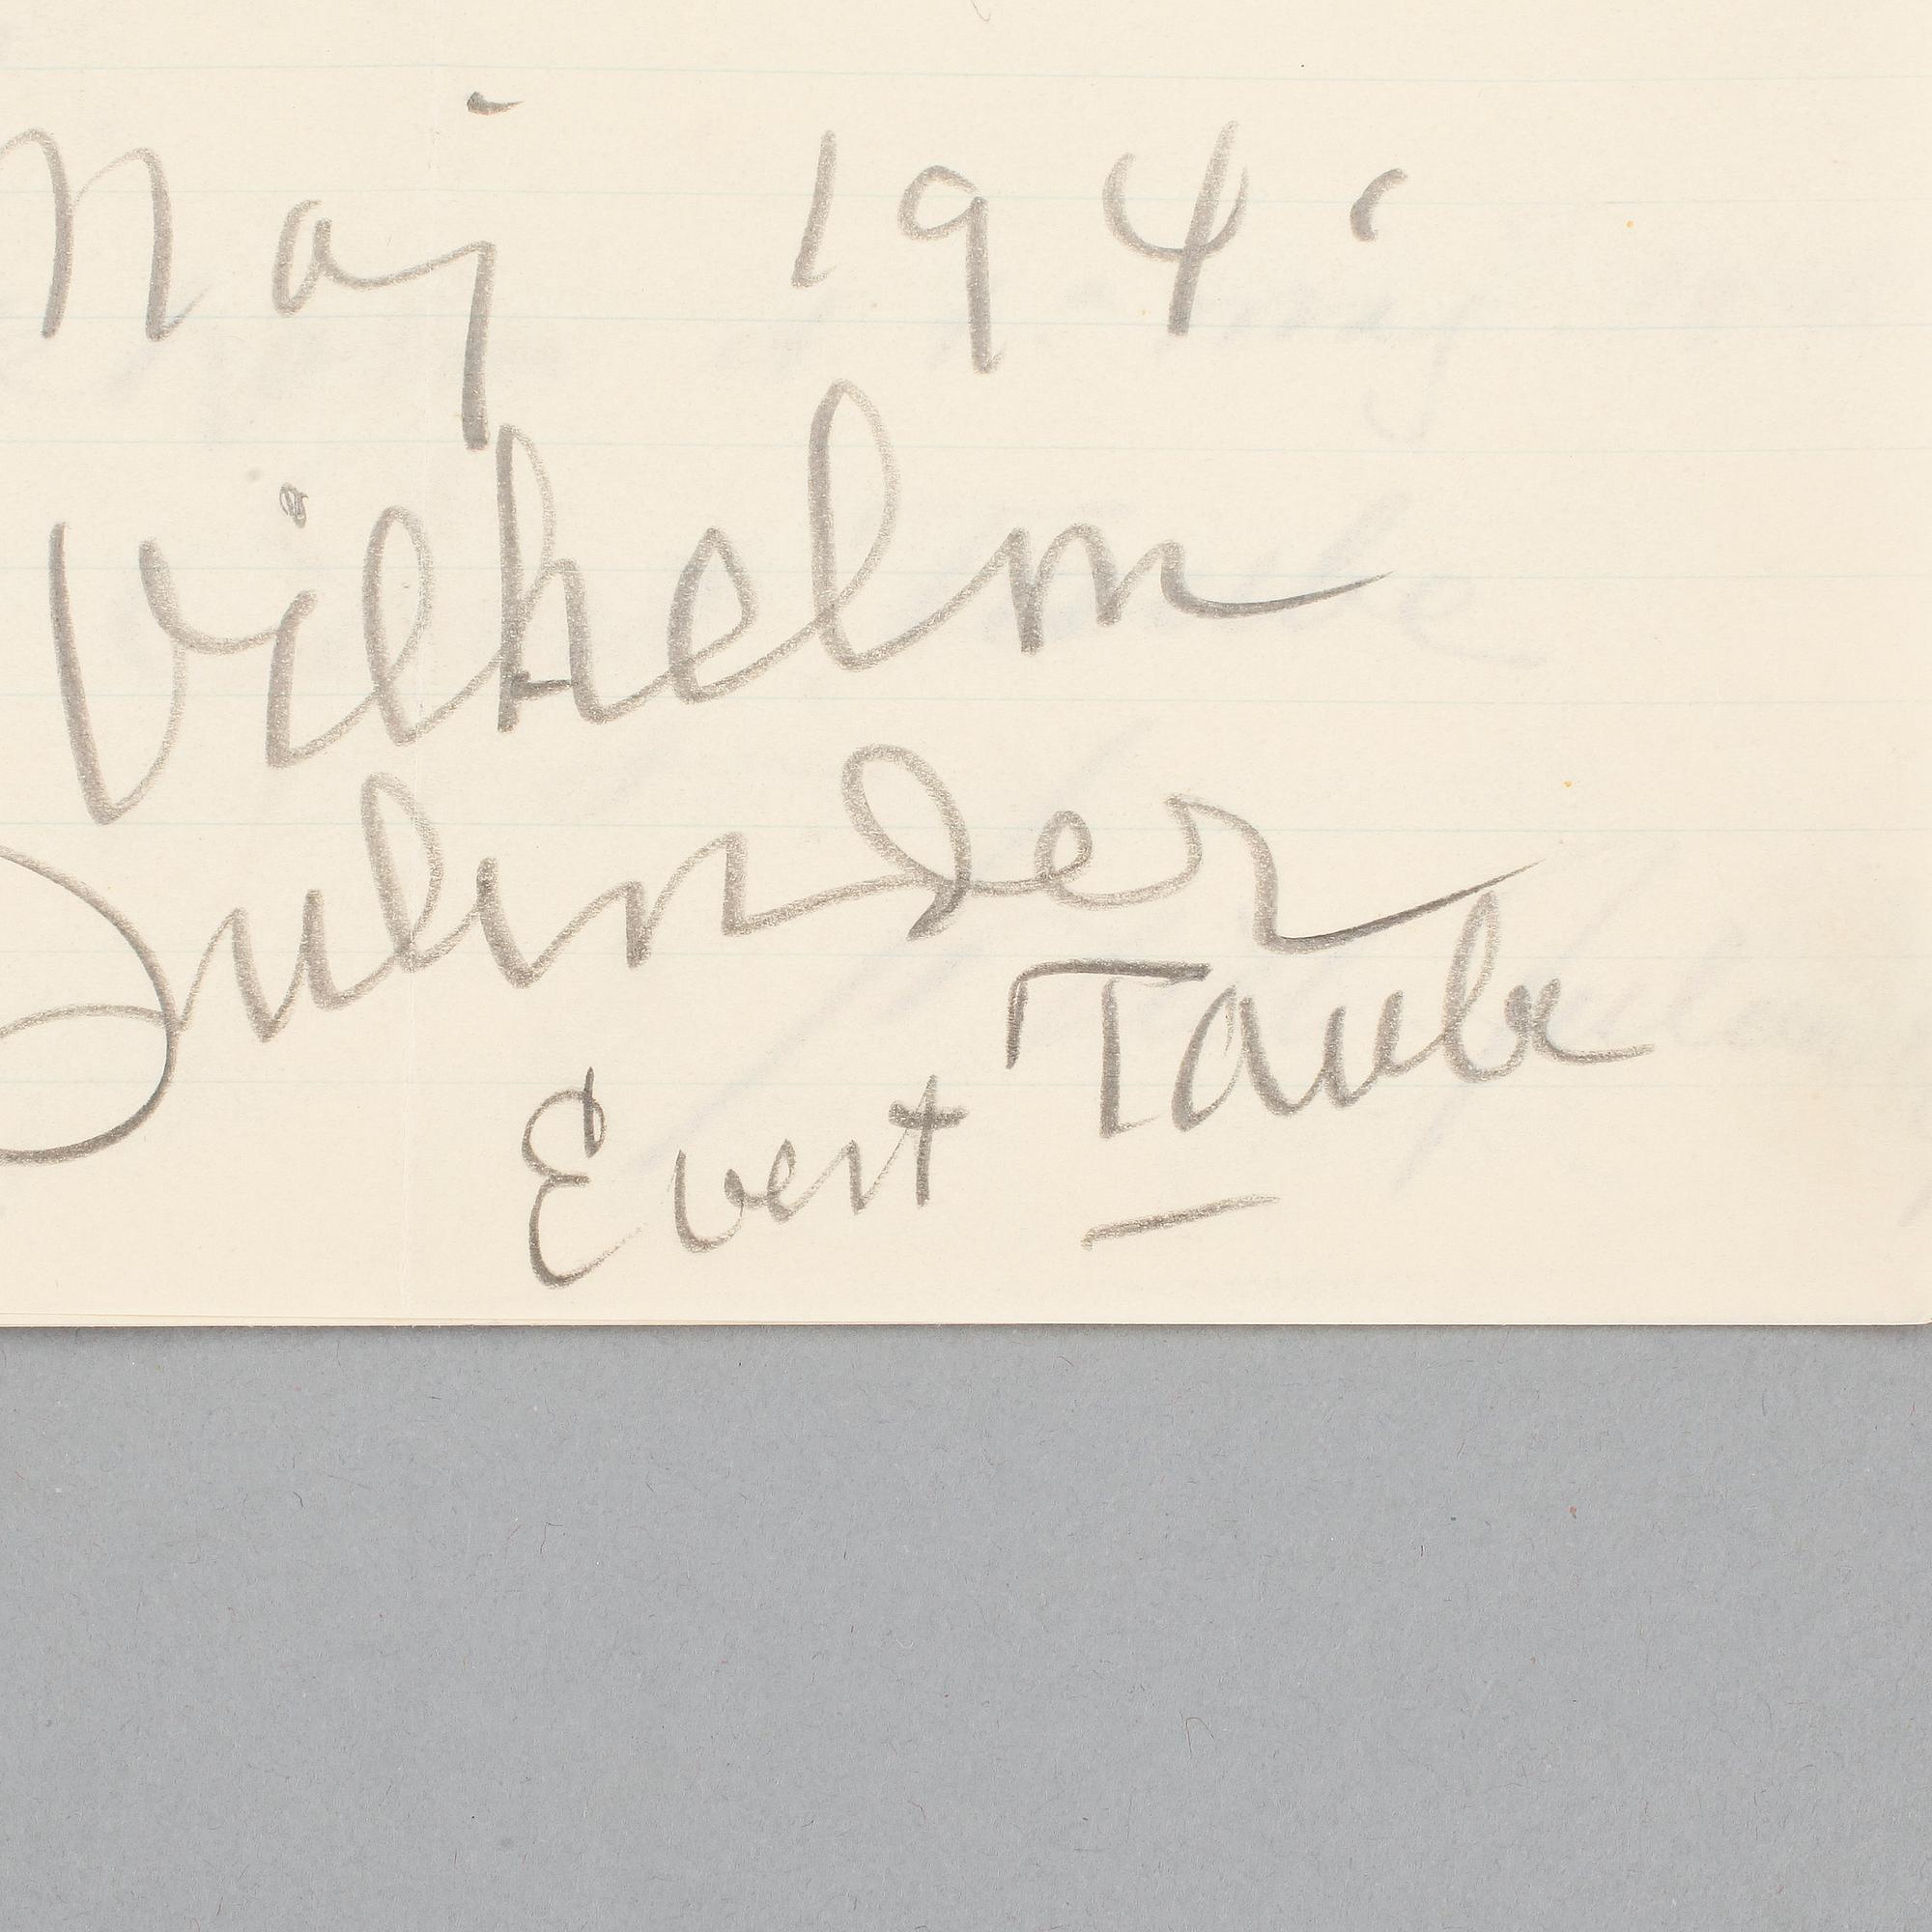 Maj 194
Vilhelm
Julinder
Evert Taube